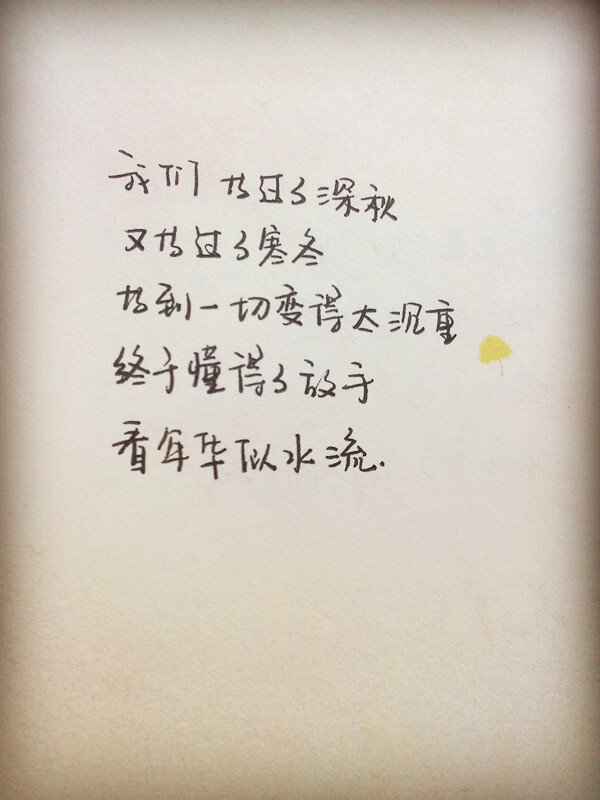 我们 过了深秋
又过了寒冬
到一切变得太沉重
终于懂得了放手
看年华似水流.